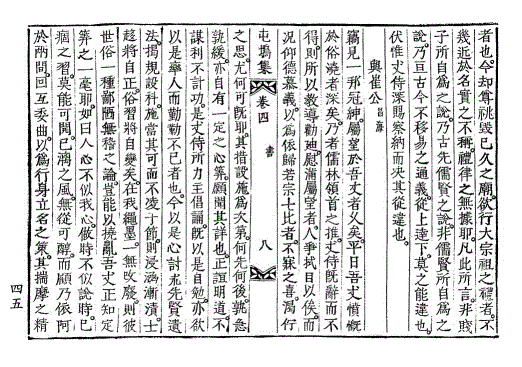 者也今却尊祧毁已久之廟欲行大宗祖之禮者不
幾近於名實之不稱禮律之無據耶凡此所言非賤
子所自爲之說乃古先儒賢之說非儒賢所自爲之
說乃亘古今不移易之通義從上達下莫之能違也
伏惟丈侍深賜察納而夬其從違也
與崔公昌
竊見一邦冠紳屬望於吾丈者久矣平日吾丈慷慨
於俗澆者深矣乃者儒林領首之推丈侍旣辭而不
得則所以教導勸迪慰滿屬望者人爭拭目以俟而
况仰德慕義以爲依歸若宗七比者不寐之喜渴行
屯塢集 卷四 書 八
之思尤何可旣耶其措設施爲次第何先何後孰急
孰緩亦自有一定之心筭願聞其詳也正誼明道不
謀利不計功是丈侍所力主倡誦旣以是自勉亦欲
以是率人而勤勤不已者也今以是心討先賢遺
法揭規設科施當其可而不凌于節則浸涵漸漬士
趍將自正俗習將自變矣在我繩墨一無改廢則彼
世俗一種鄙陋無稽之論豈能以撓亂吾丈正知定
筭之一毫耶如曰人心不似我心做時不似說時已
痼之習莫能可開已漓之風無從可醇而顧乃依阿
於兩間回互委曲以爲行身立名之策其揣摩之精
四五